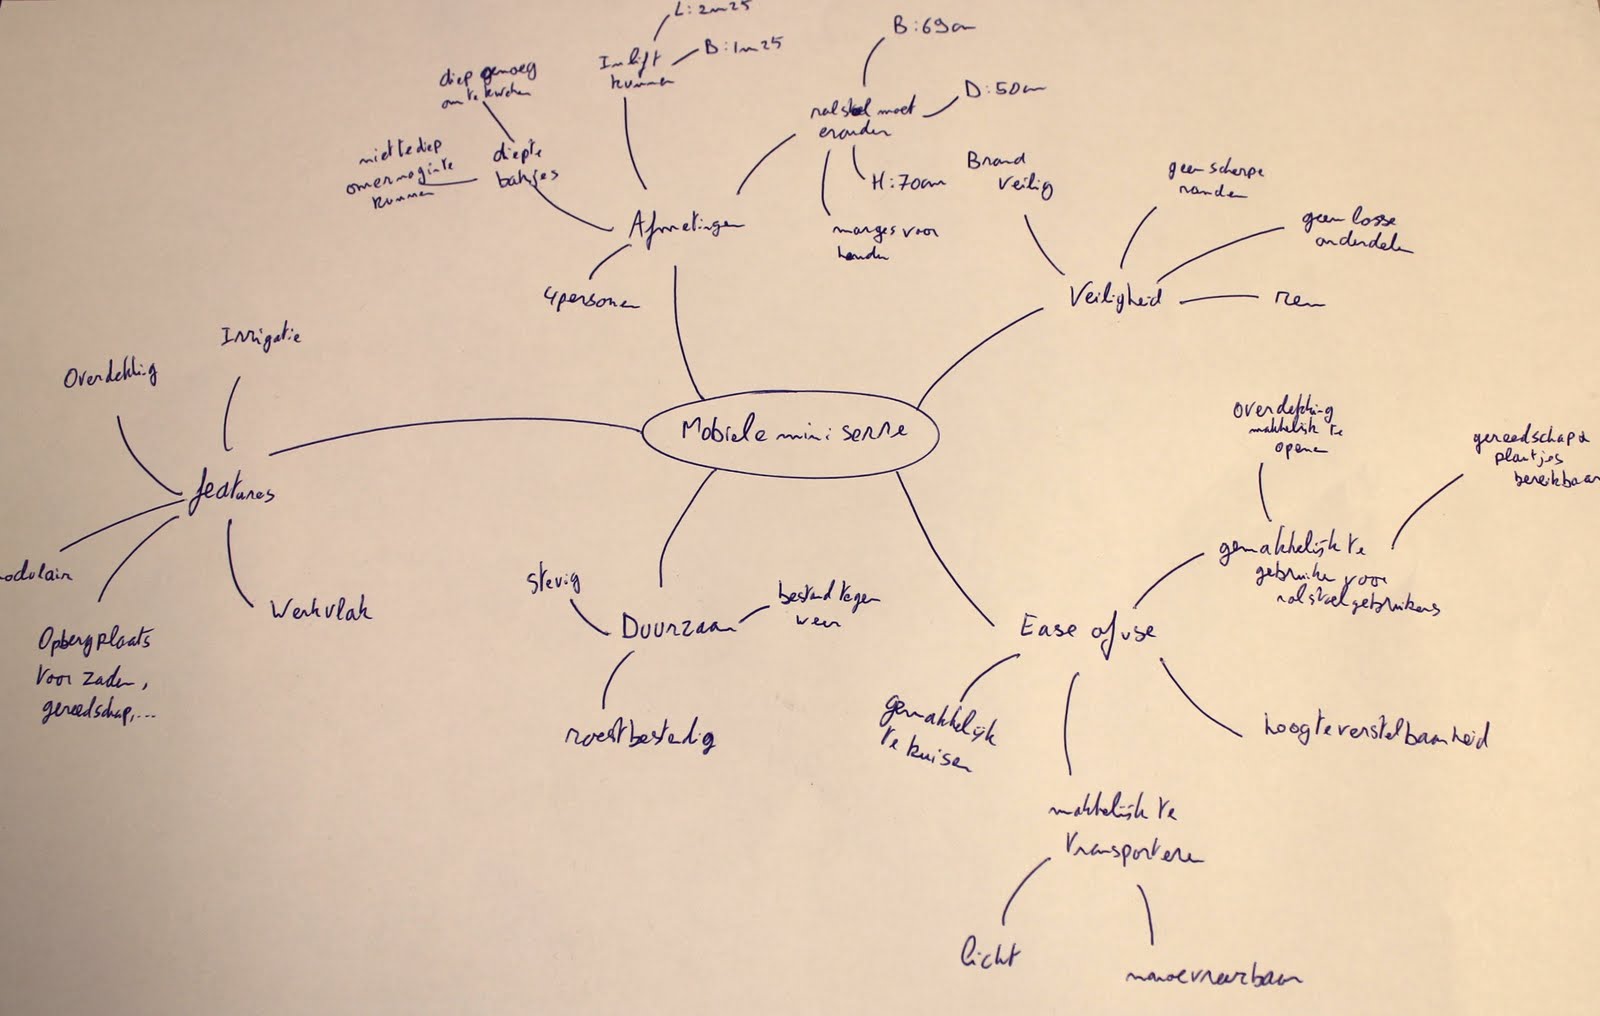 L: 2m25
B: 1m25
In lift
kunnen
B: 69cm
D: 50cm
H: 70cm
rolstoel moet
eronder
marges voor
diep genoeg
om te kweken
niet te diep
om er nog in te
kunnen
diepte
bakjes
Afmetingen
4 personen
Brand
veilig
geen scherpe
randen
geen losse
onderdelen
rem
Veiligheid
Irrigatie
Overdekking
features
modulair
Opbergplaats
voor zaden,
gereedschap,...
Werkvlak
Mobiele mini serre
stevig
Duurzaam
bestand tegen
weer
roestbestendig
overdekking
makkelijk te
openen
gereedschap &
plantjes
bereikbaar
gemakkelijk te
gebruiken voor
rolstoelgebruikers
Ease of use
gemakkelijk
te kuisen
hoogteverstelbaarheid
makkelijk te
transporteren
licht
manoeuvreerbaar